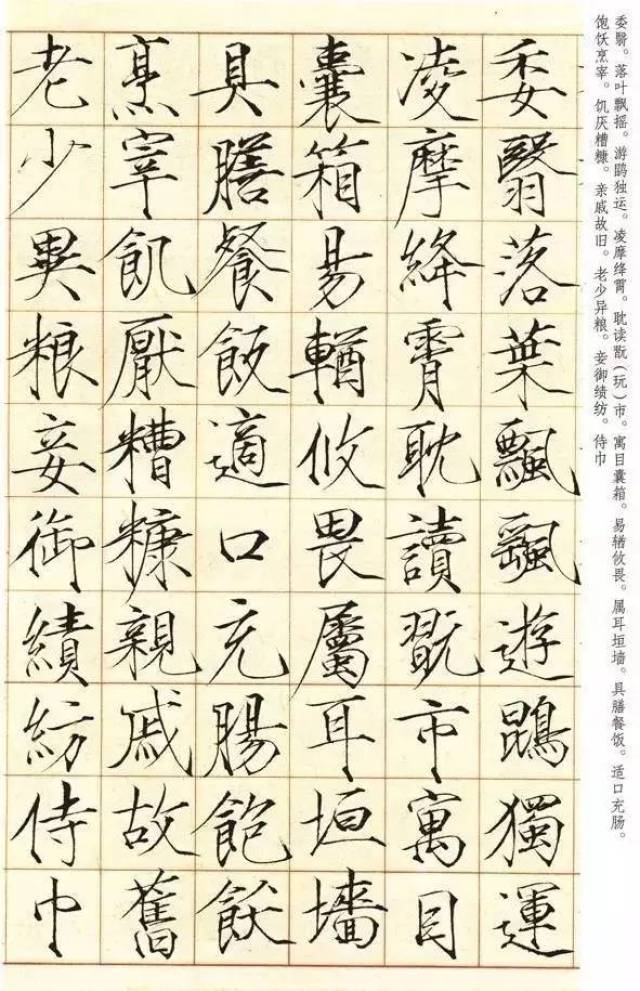 委翳。落叶飘摇。游鹍独运。凌摩绛霄。耽读翫(玩)市。寓目囊箱。易𬨎攸畏。属耳垣墙。具膳餐饭。适口充肠。
饱饫烹宰。饥厌糟糠。亲戚故旧。老少异粮。妾御绩纺。侍巾
委翳落葉飄飖遊鵾獨運
凌摩絳霄耽讀翫市寓目
囊箱易輶攸畏屬耳垣墻
具膳餐飯適口充腸飽飫
烹宰飢厭糟糠親戚故舊
老少異粮妾御績紡侍巾